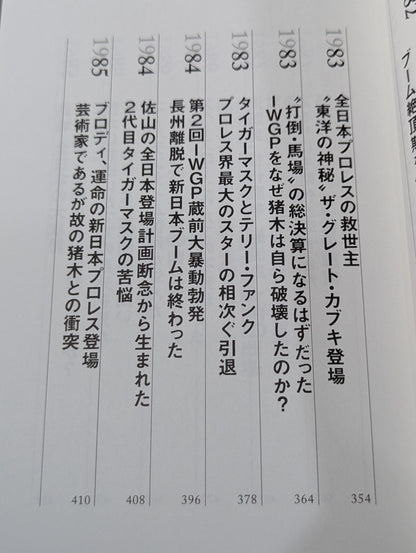 1983
全日本プロレスの救世主
“東洋の神秘”ザ・グレート・カブキ登場
354
1983
“打倒・馬場”の総決算になるはずだった
IWGPをなぜ猪木は自ら破壊したのか？
364
1983
タイガーマスクとテリー・ファンク
プロレス界最大のスターの相次ぐ引退
378
1984
第2回IWGP蔵前大暴動勃発
長州離脱で新日本ブームは終わった
396
1984
佐山の全日本登場計画断念から生まれた
2代目タイガーマスクの苦悩
408
1985
ブロディ、運命の新日本プロレス登場
芸術家であるが故の猪木との衝突
410